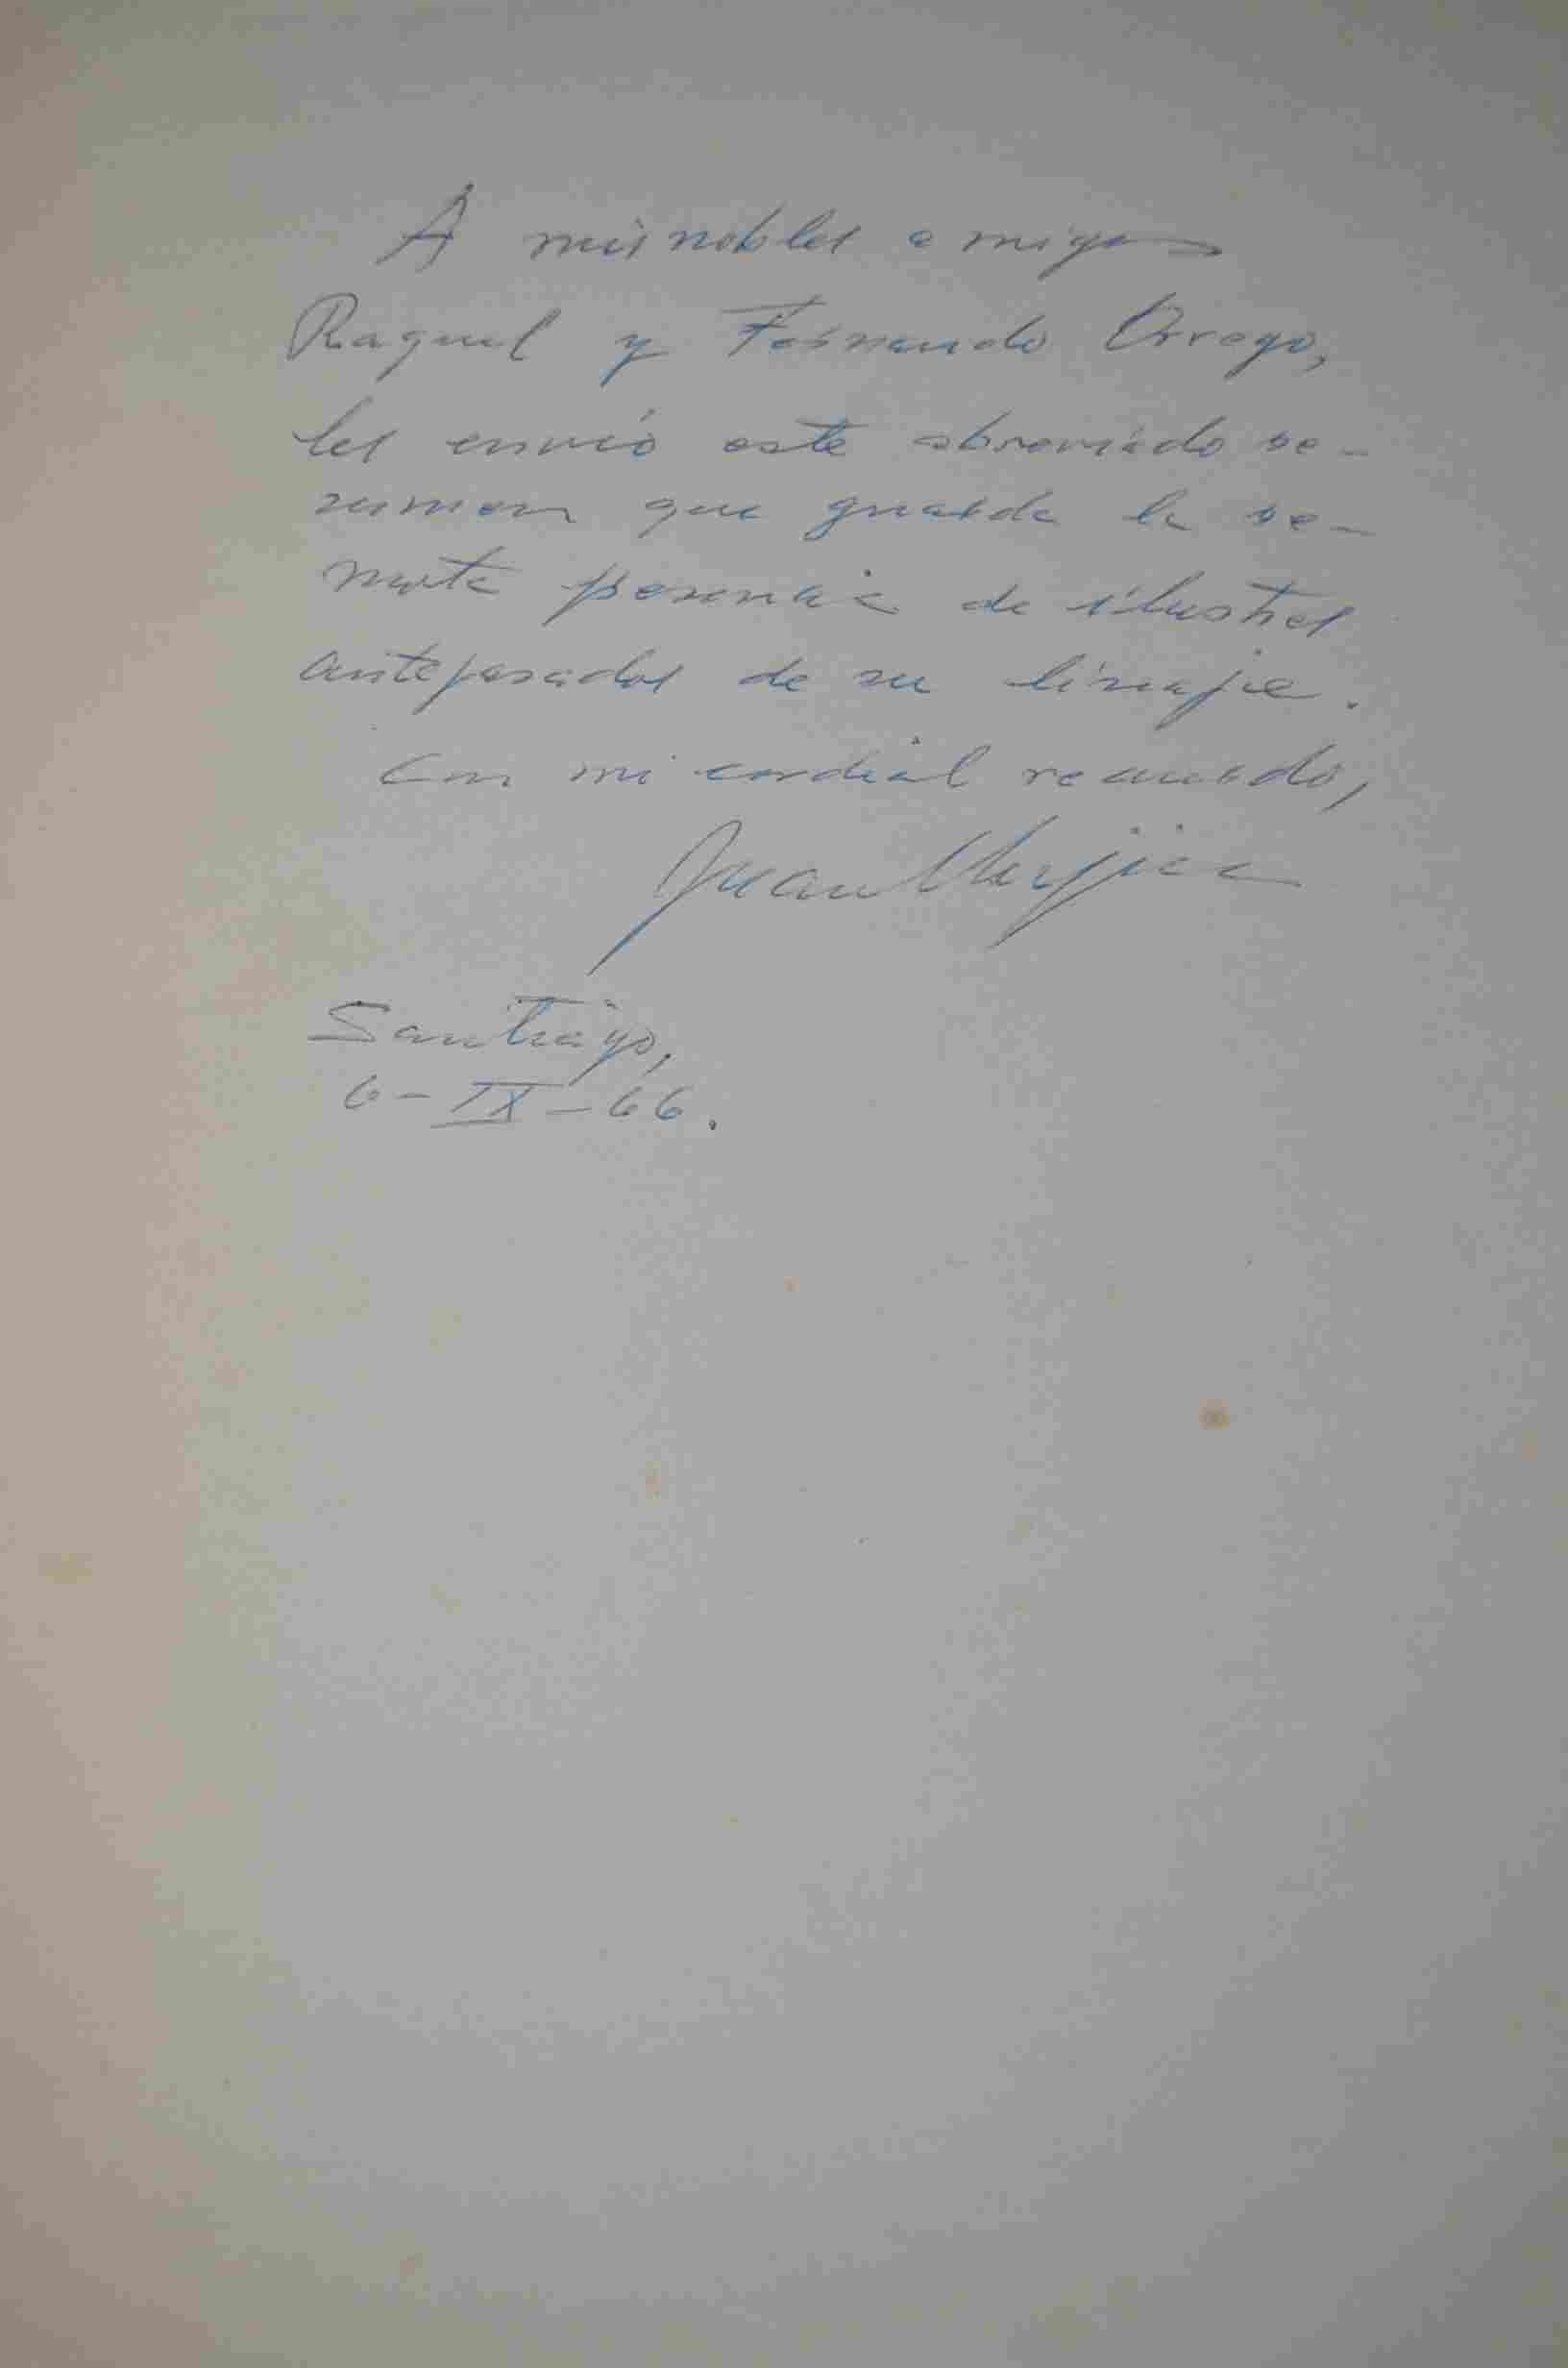 A mis nobles amigos
Raquel y Fernando Orrego,
les envió este abreviado re-
sumen que guarda la re-
mota de ilustres
antepasados de su linaje.
Con mi cordial recuerdo,
Juan Mujica
Santiago,
6-IX-66.